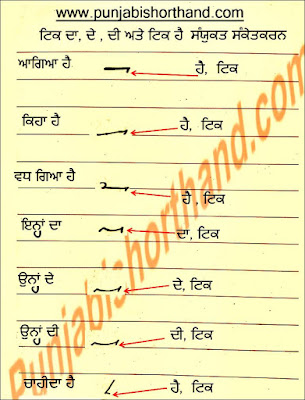 www.punjabishorthand.com
ਟਿਕ ਦਾ, ਦੇ , ਦੀ ਅਤੇ ਟਿਕ ਹੈ ਸੰਯੁਕਤ ਸੰਕੇਤਕਰਨ
ਆਗਿਆ ਹੈ ਹੈ, ਟਿਕ
ਕਿਹਾ ਹੈ ਹੈ, ਟਿਕ
ਵਧ ਗਿਆ ਹੈ ਹੈ , ਟਿਕ
ਇਨ੍ਹਾਂ ਦਾ ਦਾ, ਟਿਕ
ਉਨ੍ਹਾਂ ਦੇ ਦੇ, ਟਿਕ
ਉਨ੍ਹਾਂ ਦੀ ਦੀ, ਟਿਕ
ਚਾਹੀਦਾ ਹੈ ਹੈ , ਟਿਕ
Punjabishorthand.com